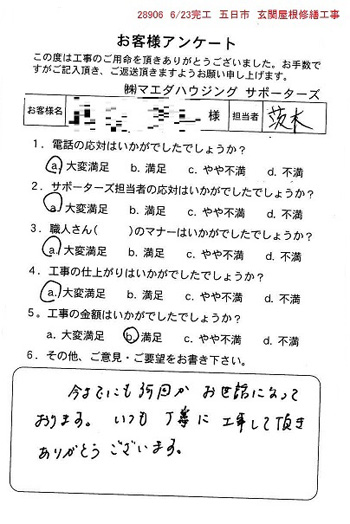 28906 6/23完工 五日市 玄関屋根修繕工事
お客様アンケート
この度は工事のご用命を頂きありがとうございました。お手数で
すがご記入頂き、ご返送頂きますようお願い申し上げます。
㈱マエダハウジング サポーターズ
お客様名 様 担当者 茨木
1．電話の応対はいかがでしたでしょうか？
a. 大変満足 b. 満足 c. やや不満 d. 不満
2．サポーターズ担当者の応対はいかがでしたでしょうか？
a. 大変満足 b. 満足 c. やや不満 d. 不満
3．職人さん( )のマナーはいかがでしたでしょうか？
a. 大変満足 b. 満足 c. やや不満 d. 不満
4．工事の仕上がりはいかがでしたでしょうか？
a. 大変満足 b. 満足 c. やや不満 d. 不満
5。工事の金額はいかがでしたでしょうか？
a. 大変満足 b. 満足 c. やや不満 d. 不満
6．その他、ご意見・ご要望をお書き下さい。
今までにも何回か お世話になって
おります。いつも 丁寧に 工事して頂き
ありがとう ございます。